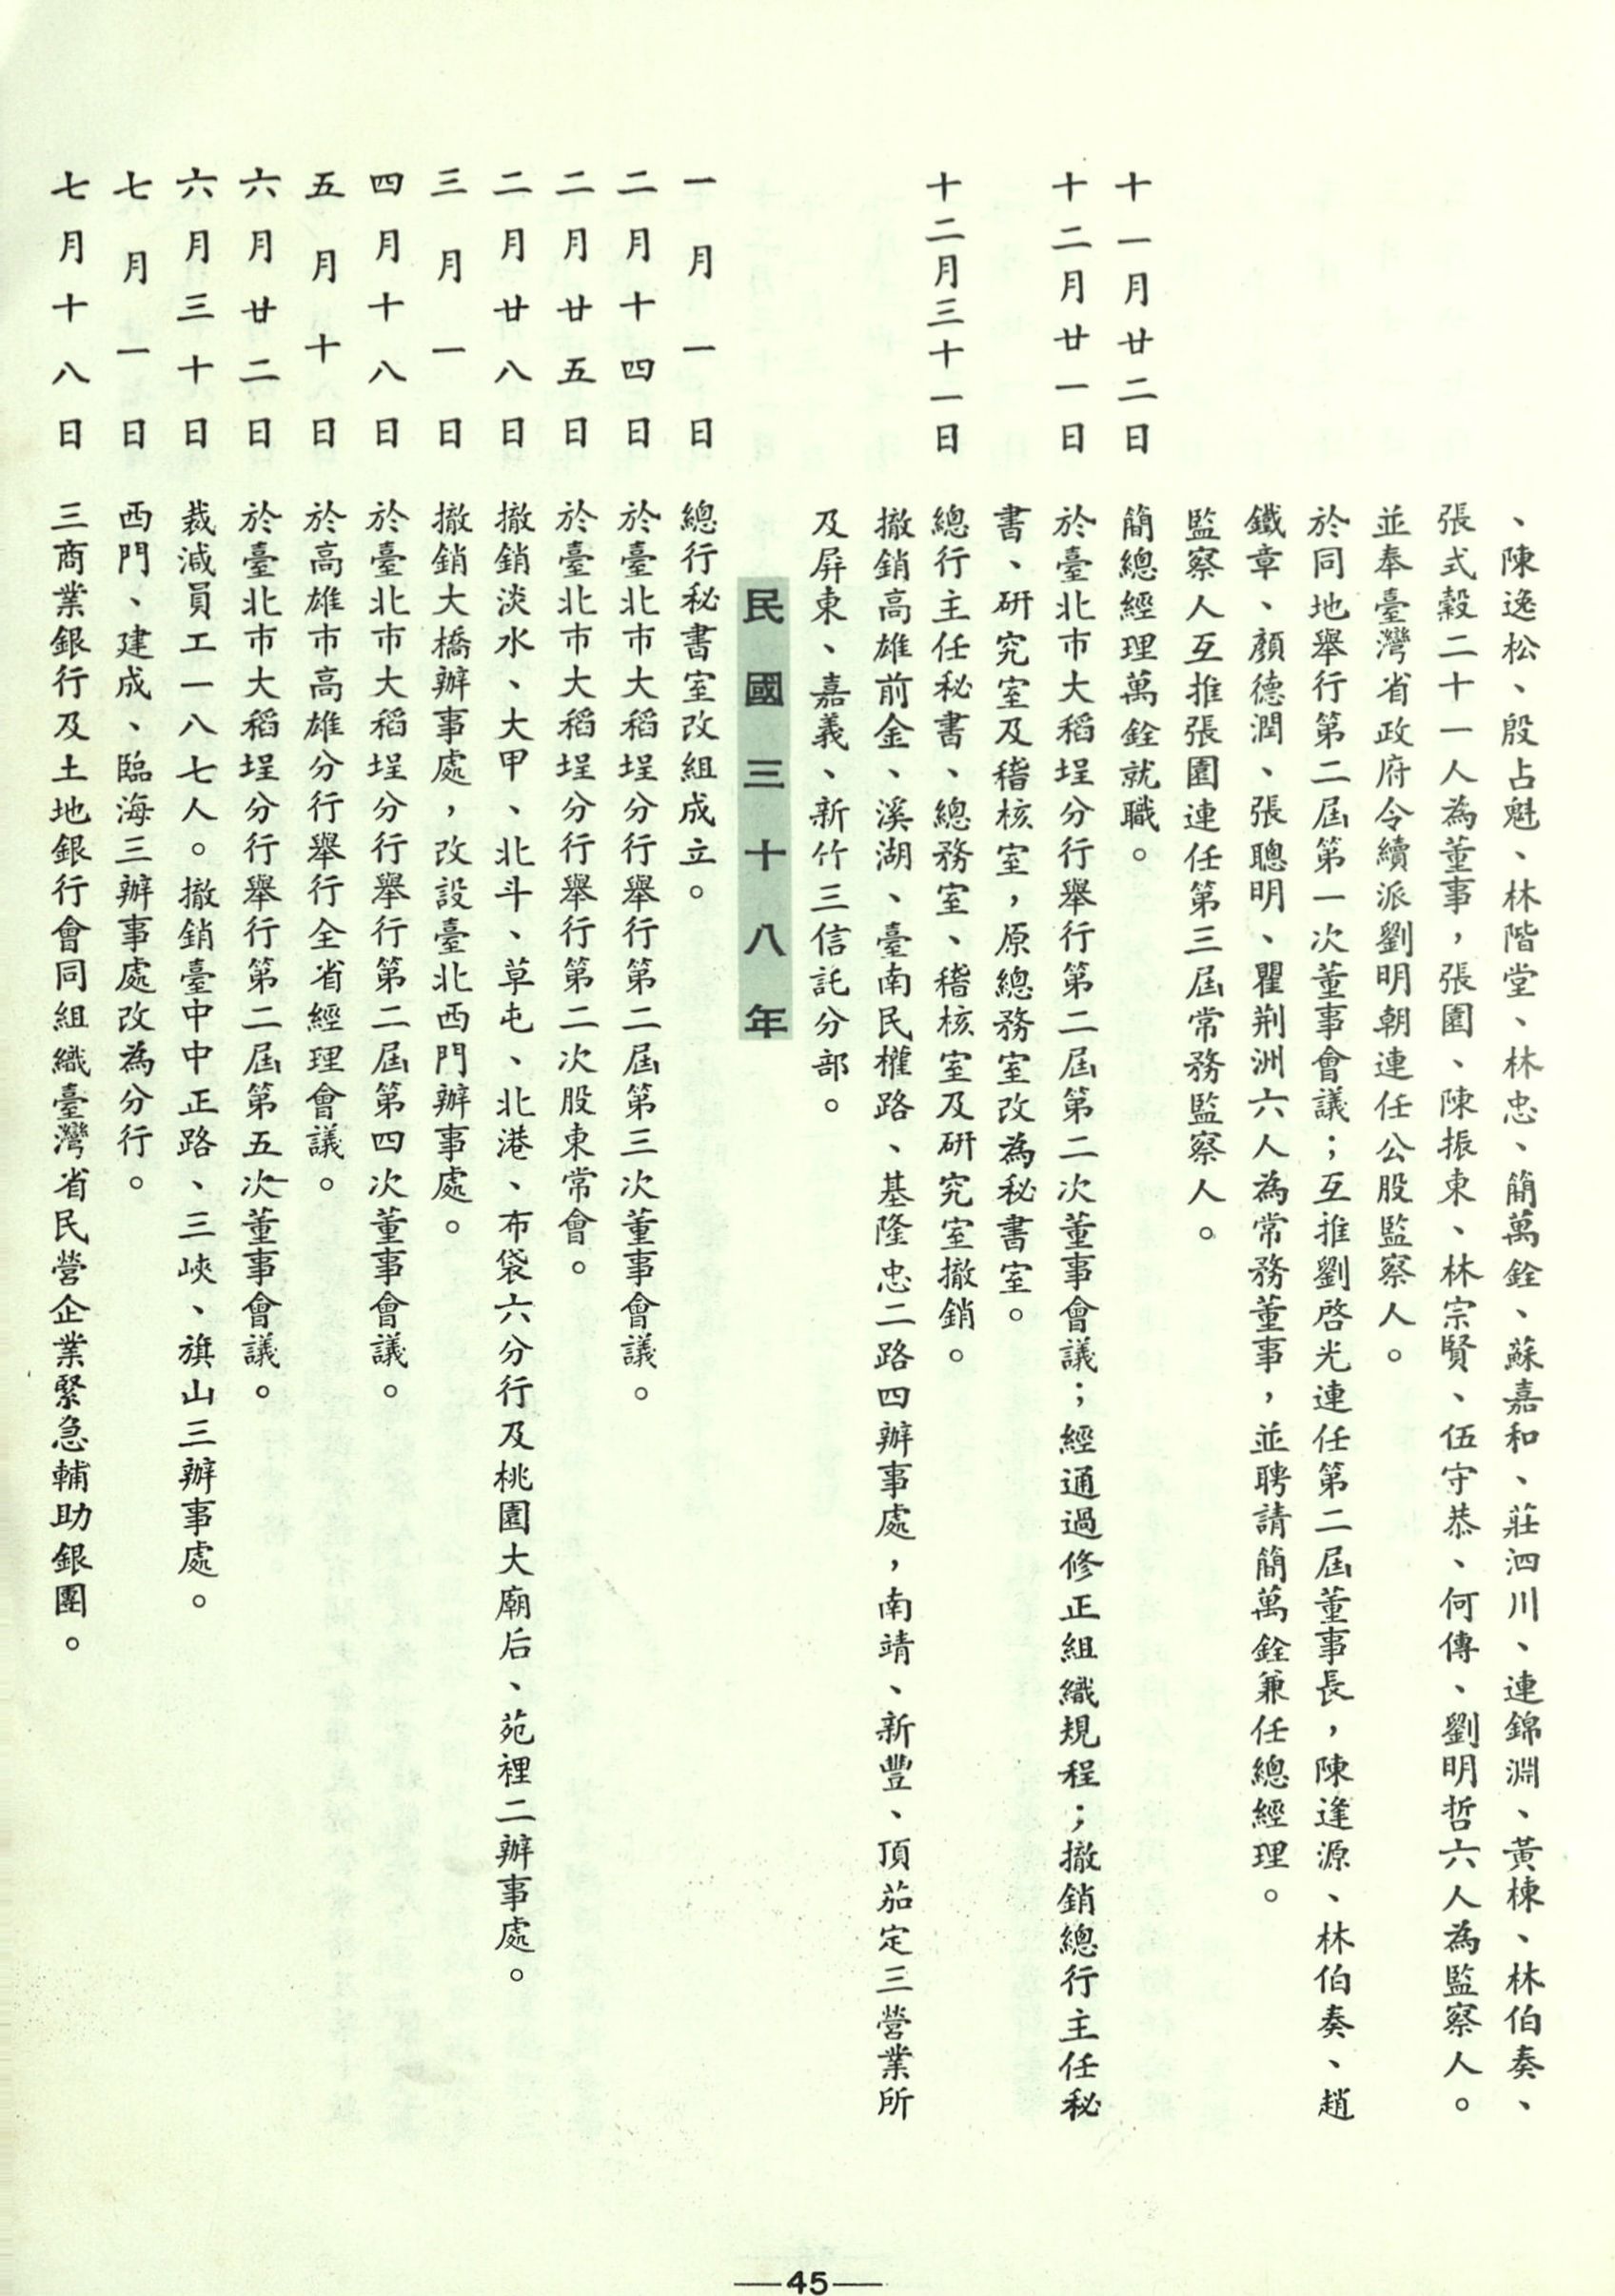 、陳逸松、殷占魁、林階堂、林忠、簡萬銓、蘇嘉和、莊泗川、連錦淵、黃棟、林伯奏、
張式穀二十一人為董事，張園、陳振東、林宗賢、伍守恭、何傳、劉明哲六人為監察人。
並奉臺灣省政府令續派劉明朝連任公股監察人。
於同地舉行第二屆第一次董事會議；互推劉啓光連任第二屆董事長，陳逢源、林伯奏、趙
鐵章、顏德潤、張聰明、瞿荆洲六人為常務董事，並聘請簡萬銓兼任總經理。
監察人互推張園連任第三屆常務監察人。
十一月廿二日 簡總經理萬銓就職。
十二月廿一日 於臺北市大稻埕分行舉行第二屆第二次董事會議；經通過修正組織規程；撤銷總行主任秘
書、研究室及稽核室，原總務室改為秘書室。
十二月三十一日 總行主任秘書、總務室、稽核室及研究室撤銷。
撤銷高雄前金、溪湖、臺南民權路、基隆忠二路四辦事處，南靖、新豐、頂茄定三營業所
及屏東、嘉義、新竹三信託分部。
民國三十八年
一月一日 總行秘書室改組成立。
二月十四日 於臺北市大稻埕分行舉行第二屆第三次董事會議。
二月廿五日 於臺北市大稻埕分行舉行第二次股東常會。
二月廿八日 撤銷淡水、大甲、北斗、草屯、北港、布袋六分行及桃園大廟后、苑裡二辦事處。
三月一日 撤銷大橋辦事處，改設臺北西門辦事處。
四月十八日 於臺北市大稻埕分行舉行第二屆第四次董事會議。
五月十日 於高雄市高雄分行舉行全省經理會議。
六月廿二日 於臺北市大稻埕分行舉行第二屆第五次董事會議。
六月三十日 裁減員工一八七人。撤銷臺中中正路、三峽、旗山三辦事處。
七月一日 西門、建成、臨海三辦事處改為分行。
七月十八日 三商業銀行及土地銀行會同組織臺灣省民營企業緊急輔助銀團。
—45—